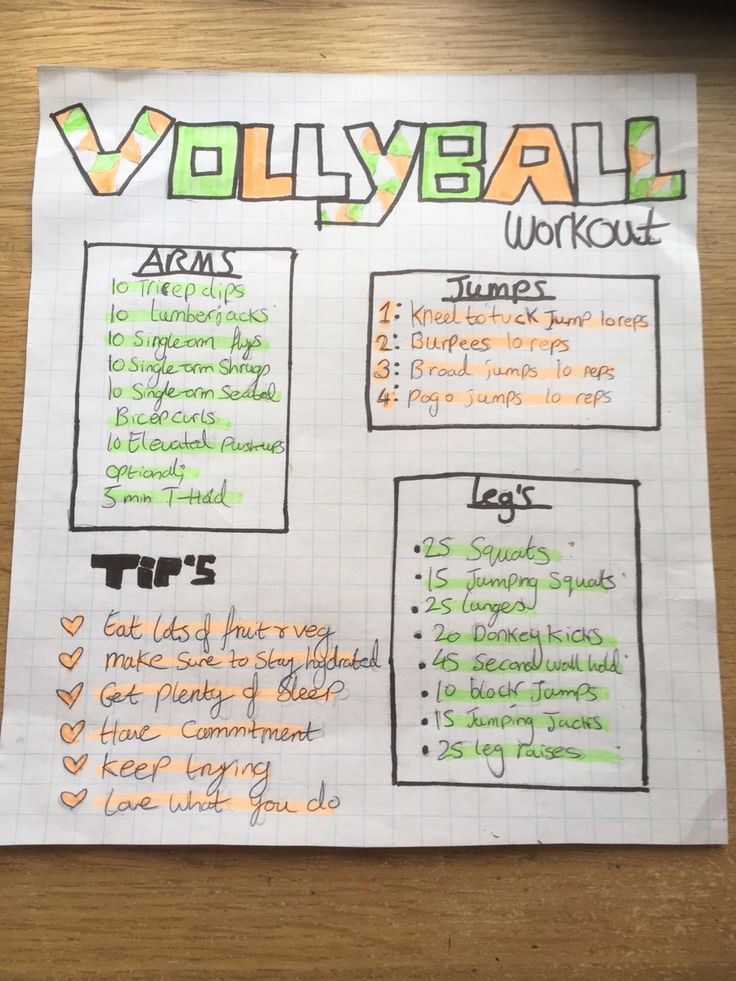 VOLLYBALL
Workout
ARMS
10 Tricep dips
10 Lumberjacks
10 Single-arm flys
10 Single-arm Shrugs
10 Single-arm Seated
Bicep curls
10 Elevated Push-ups
optional;
5 min T-Hold
Jumps
1: Kneel to tuck Jump 10 reps
2: Burpees 10 reps
3: Broad jumps 10 reps
4: Pogo jumps 10 reps
Leg's
• 25 Squats
• 15 Jumping Squats
• 25 Lunges
• 20 Donkey Kicks
• 45 Second wall hold
• 10 block Jumps
• 15 Jumping Jacks
• 25 leg raises
TIP'S
Eat lots of fruit & veg
make Sure to Stay hydrated
Get plenty of Sleep
Have Commitment
Keep trying
Love what you do